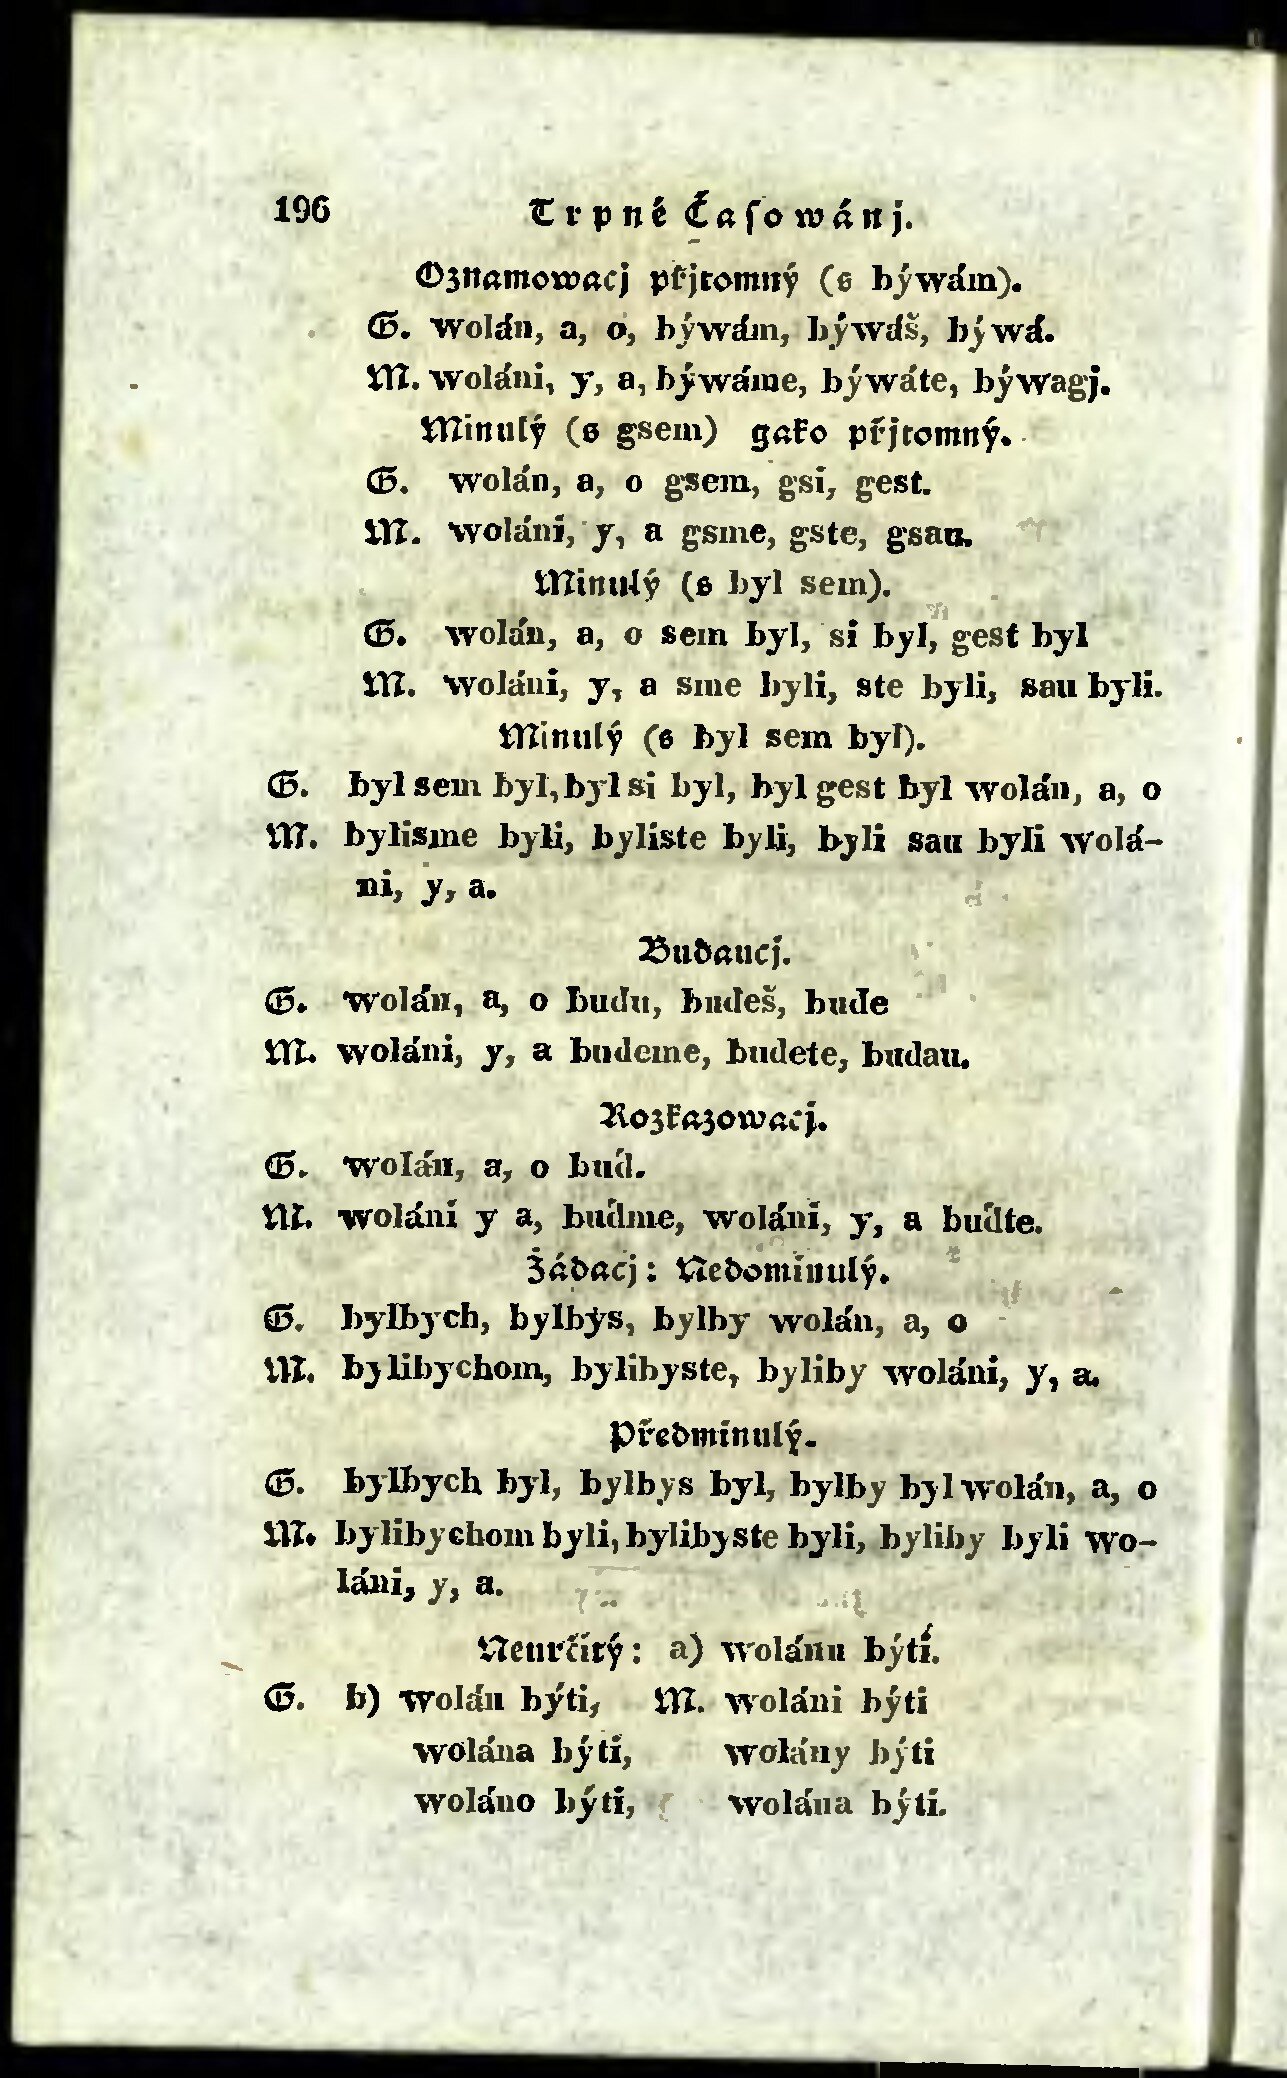 196 Trpné Časowánj.
Oznamowacj přjtomný (s býwám).
G. wolán, a, o, býwám, býwáš, býwá.
M. woláni, y, a, býwáme, býwáte, býwagj.
Minulý (s gsem) gako přjtomný.
G. wolán, a, o gsem, gsi, gest.
M. woláni, y, a gsme, gste, gsau.
Minulý (s byl sem).
G. wolán, a, o sem byl, si byl, gest byl
M. woláni, y, a sme byli, ste byli, sau byli.
Minulý (s byl sem byl).
G. byl sem byl, byl si byl, byl gest byl wolán, a, o
M. bylisme byli, byliste byli, byli sau byli wolá-
ni, y, a.
Budaucj.
G. wolán, a, o budu, budeš, bude
M. woláni, y, a budeme, budete, budau.
Rozkazowacj.
G. wolán, a, o buď.
M. woláni y a, buďme, woláni, y, a buďte.
Žádacj: Nedominulý.
G. bylbych, bylbys, bylby wolán, a, o
M. bylibychom, bylibyste, byliby woláni, y, a.
Předminulý.
G. bylbych byl, bylbys byl, bylby byl wolán, a, o
M. bylibychom byli, bylibyste byli, byliby byli wo-
láni, y, a.
Neurčitý: a) wolánu býti.
G. b) wolán býti, M. woláni býti
wolána býti, wolány býti
woláno býti, wolána býti.